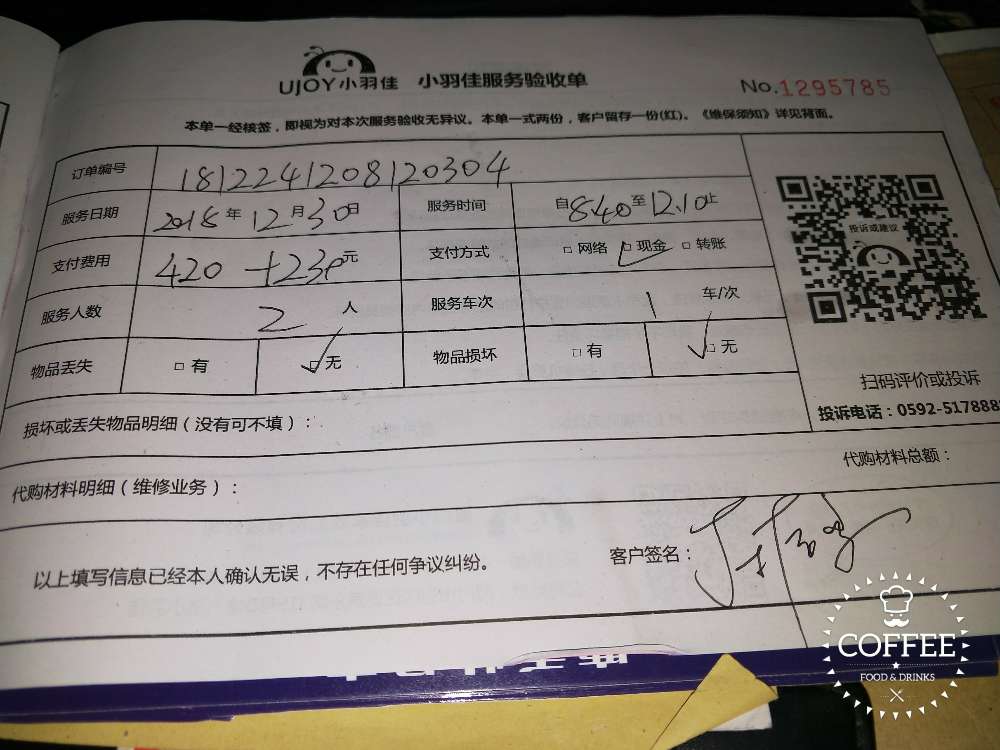 UJOY小羽佳 小羽佳服务验收单 No.1295785
本单一经核签，即视为对本次服务验收无异议。本单一式两份，客户留存一份(红)。《维保须知》详见背面。
订单编号 181224120812030​4
服务日期 2018年12月30日 服务时间 自8:40至12:10止
支付费用 420+230元 支付方式 □网络 □现金 □转账
服务人数 2人 服务车次 1车/次
物品丢失 □有 □无 物品损坏 □有 □无
投诉或建议
扫码评价或投诉
投诉电话：0592-517888
损坏或丢失物品明细（没有可不填）：
代购材料明细（维修业务）： 代购材料总额：
以上填写信息已经本人确认无误，不存在任何争议纠纷。 客户签名：
COFFEE
FOOD & DRINKS